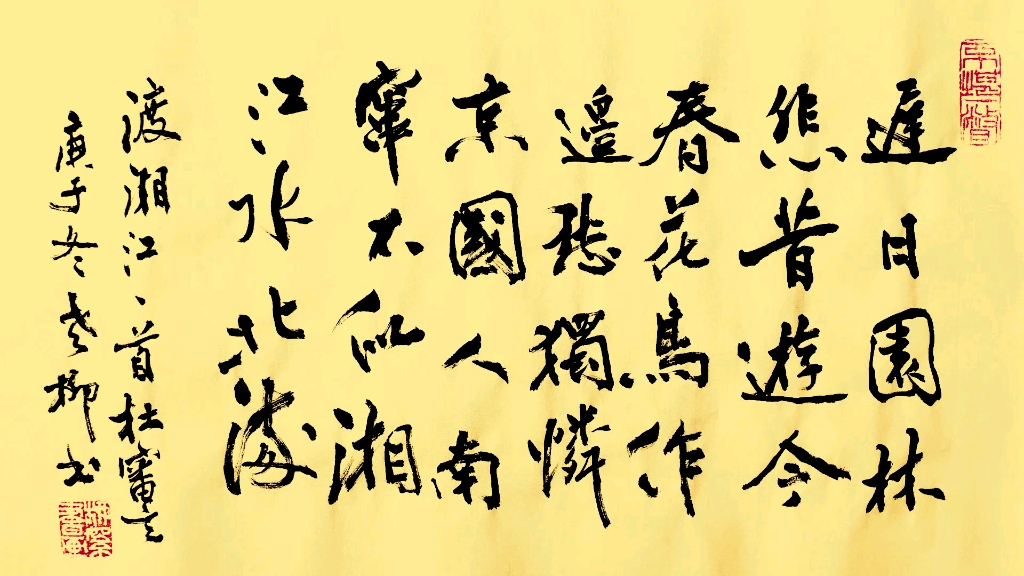 遲日園林
悲昔遊今
春花鳥作
邊愁獨憐
京國人南
竄不似湘
江水北流
渡湘江一首杜審言
庚子冬老柳书